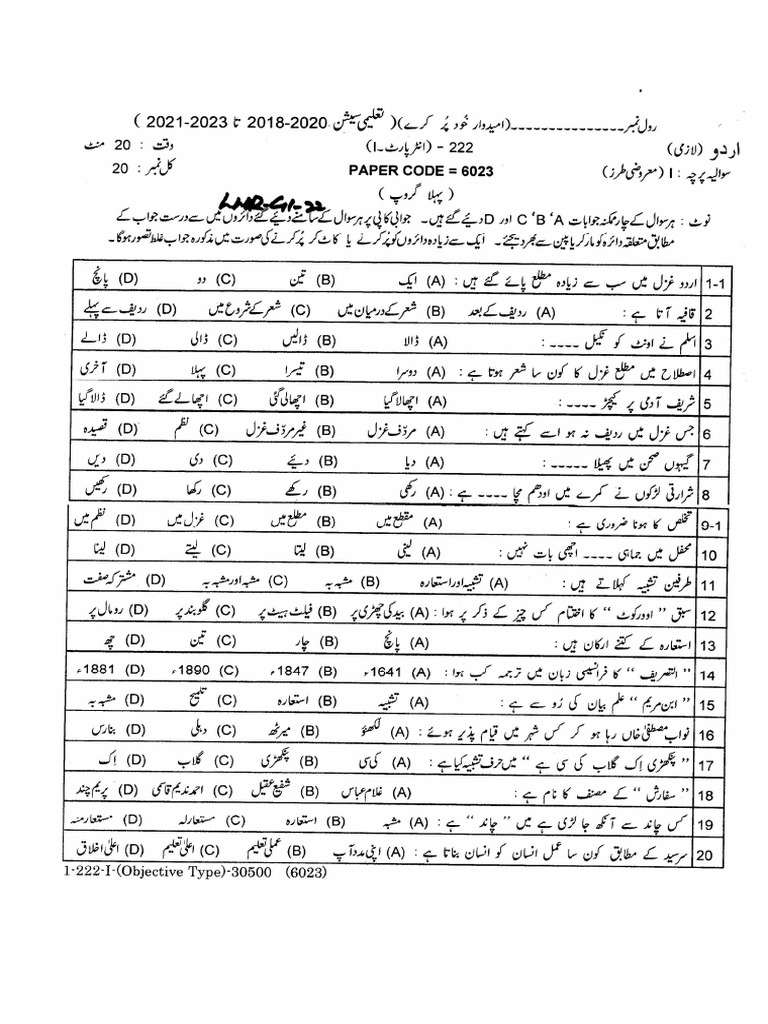 رول نمبر ــــــــــــــ (امیدوار خُود پُر کرے) ( تعلیمی سیشن 2020-2018 تا 2023-2021 )
اردو (لازمی) 222 - (انٹر پارٹ - I) وقت : 20 منٹ
سوالیہ پرچہ : I (معروضی طرز) PAPER CODE = 6023 کل نمبر : 20
( پہلا گروپ ) LHR-G1-22
نوٹ : ہر سوال کے چار ممکنہ جوابات A، B، C اور D دیئے گئے ہیں۔ جوابی کاپی پر ہر سوال کے سامنے دیئے گئے دائروں میں سے درست جواب کے
مطابق متعلقہ دائرہ کو مارکر یا پین سے بھر دیجئے۔ ایک سے زیادہ دائروں کو پُر کرنے یا کاٹ کر پُر کرنے کی صورت میں مذکورہ جواب غلط تصور ہوگا۔
1-1 اردو غزل میں سب سے زیادہ مطلع پائے گئے ہیں : (A) ایک (B) تین (C) دو (D) پانچ
2 قافیہ آتا ہے : (A) ردیف کے بعد (B) شعر کے درمیان میں (C) شعر کے شروع میں (D) ردیف سے پہلے
3 اسلم نے اونٹ کو نکیل ۔۔۔۔ : (A) ڈالا (B) ڈالیں (C) ڈالی (D) ڈالے
4 اصطلاح میں مطلع غزل کا کون سا شعر ہوتا ہے : (A) دوسرا (B) تیسرا (C) پہلا (D) آخری
5 شریف آدمی پر کیچڑ ۔۔۔۔ : (A) اچھالا گیا (B) اچھالی گئی (C) اچھالے گئے (D) ڈالا گیا
6 جس غزل میں ردیف نہ ہو اسے کہتے ہیں : (A) مردّف غزل (B) غیر مردّف غزل (C) نظم (D) قصیدہ
7 گیہوں صحن میں پھیلا ۔۔۔۔۔ : (A) دیا (B) دیئے (C) دی (D) دیں
8 شرارتی لڑکوں نے کمرے میں اودھم مچا ۔۔۔۔ ہے : (A) رکھی (B) رکھے (C) رکھا (D) رکھیں
9-1 تخلص کا ہونا ضروری ہے : (A) مقطع میں (B) مطلع میں (C) غزل میں (D) نظم میں
10 محفل میں جماہی ۔۔۔۔ اچھی بات نہیں : (A) لینی (B) لیتا (C) لیتے (D) لینا
11 طرفین تشبیہ کہلاتے ہیں : (A) تشبیہ اور استعارہ (B) مشبہ بہ (C) مشبہ اور مشبہ بہ (D) مشترکہ صفت
12 سبق ’’ اوورکوٹ ‘‘ کا اختتام کس چیز کے ذکر پر ہوا : (A) بید کی چھڑی پر (B) فیلٹ ہیٹ پر (C) گلوبند پر (D) رومال پر
13 استعارہ کے کتنے ارکان ہیں : (A) پانچ (B) چار (C) تین (D) چھ
14 ’’ التصریف ‘‘ کا فرانسیسی زبان میں ترجمہ کب ہوا : (A) 1641ء (B) 1847ء (C) 1890ء (D) 1881ء
15 ’’ ابن مریم ‘‘ علم بیان کی رُو سے ہے : (A) تشبیہ (B) استعارہ (C) تلمیح (D) مشبہ بہ
16 نواب مصطفیٰ خاں رہا ہو کر کس شہر میں قیام پذیر ہوئے : (A) لکھنؤ (B) میرٹھ (C) دہلی (D) بنارس
17 ’’ پنکھڑی اِک گلاب کی سی ہے ‘‘ میں حرف تشبیہ کیا ہے : (A) کی سی (B) پنکھڑی (C) گلاب (D) اِک
18 ’’ سفارش ‘‘ کے مصنف کا نام ہے : (A) غلام عباس (B) شفیع عقیل (C) احمد ندیم قاسمی (D) پریم چند
19 کس چاند سے آنکھ جا لڑی ہے میں ’’ چاند ‘‘ ہے : (A) مشبہ (B) استعارہ (C) مستعارلہ (D) مستعارمنہ
20 سرسید کے مطابق کون سا عمل انسان کو انسان بناتا ہے : (A) اپنی مدد آپ (B) عملی تعلیم (C) اعلیٰ تعلیم (D) اعلیٰ اخلاق
1-222-I-(Objective Type)-30500 (6023)